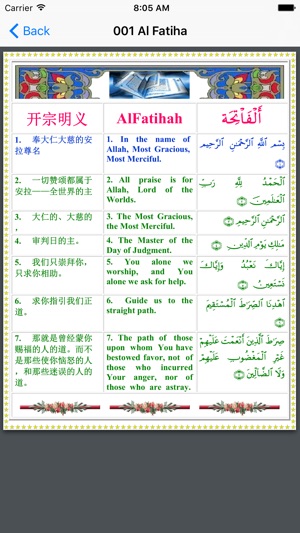 Carrier 8:05 AM
Back 001 Al Fatiha
开宗明义
AlFatihah
اَلْفَاتِحَة
1. 奉大仁大慈的安
拉尊名
1. In the name of
Allah, Most Gracious,
Most Merciful.
بِسْمِ ٱللَّهِ ٱلرَّحْمَٰنِ ٱلرَّحِيمِ
2. 一切赞颂都属于
安拉——全世界的主
2. All praise is for
Allah, Lord of the
Worlds.
ٱلْحَمْدُ لِلَّهِ رَبِّ
ٱلْعَٰلَمِينَ
3. 大仁的、大慈的
,
3. The Most Gracious,
the Most Merciful.
ٱلرَّحْمَٰنِ ٱلرَّحِيمِ
4. 审判日的主。
4. The Master of the
Day of Judgment.
مَٰلِكِ يَوْمِ ٱلدِّينِ
5. 我们只崇拜你,
只求你相助。
5. You alone we
worship, and You
alone we ask for help.
إِيَّاكَ نَعْبُدُ وَإِيَّاكَ
نَسْتَعِينُ
6. 求你指引我们正
道。
6. Guide us to the
straight path.
ٱهْدِنَا ٱلصِّرَٰطَ ٱلْمُسْتَقِيمَ
7. 那就是曾经蒙你
赐福的人的道。而不
是那些使你恼怒的人
，和那些迷误的人的
道。
7. The path of those
upon whom You have
bestowed favor, not of
those who incurred
Your anger, nor of
those who are astray.
صِرَٰطَ ٱلَّذِينَ أَنْعَمْتَ عَلَيْهِمْ
غَيْرِ ٱلْمَغْضُوبِ عَلَيْهِمْ
وَلَا ٱلضَّآلِّينَ